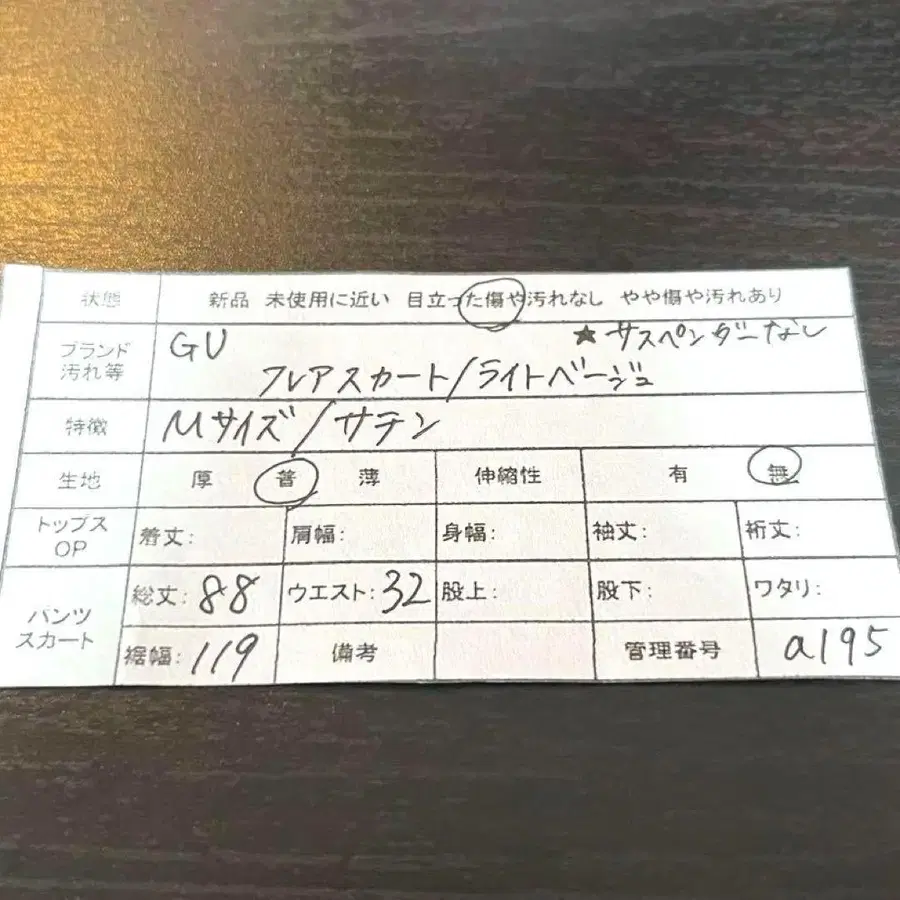 状態 新品 未使用に近い 目立った傷や汚れなし やや傷や汚れあり
ブランド 汚れ等 GU ★サスペンダーなし
フレアスカート/ライトベージュ
特徴 Mサイズ/サテン
生地 厚 普 薄 伸縮性 有 無
トップス OP 着丈: 肩幅: 身幅: 袖丈: 裄丈:
パンツ スカート 総丈: 88 ウエスト: 32 股上: 股下: ワタリ:
裾幅: 119 備考 管理番号 a195